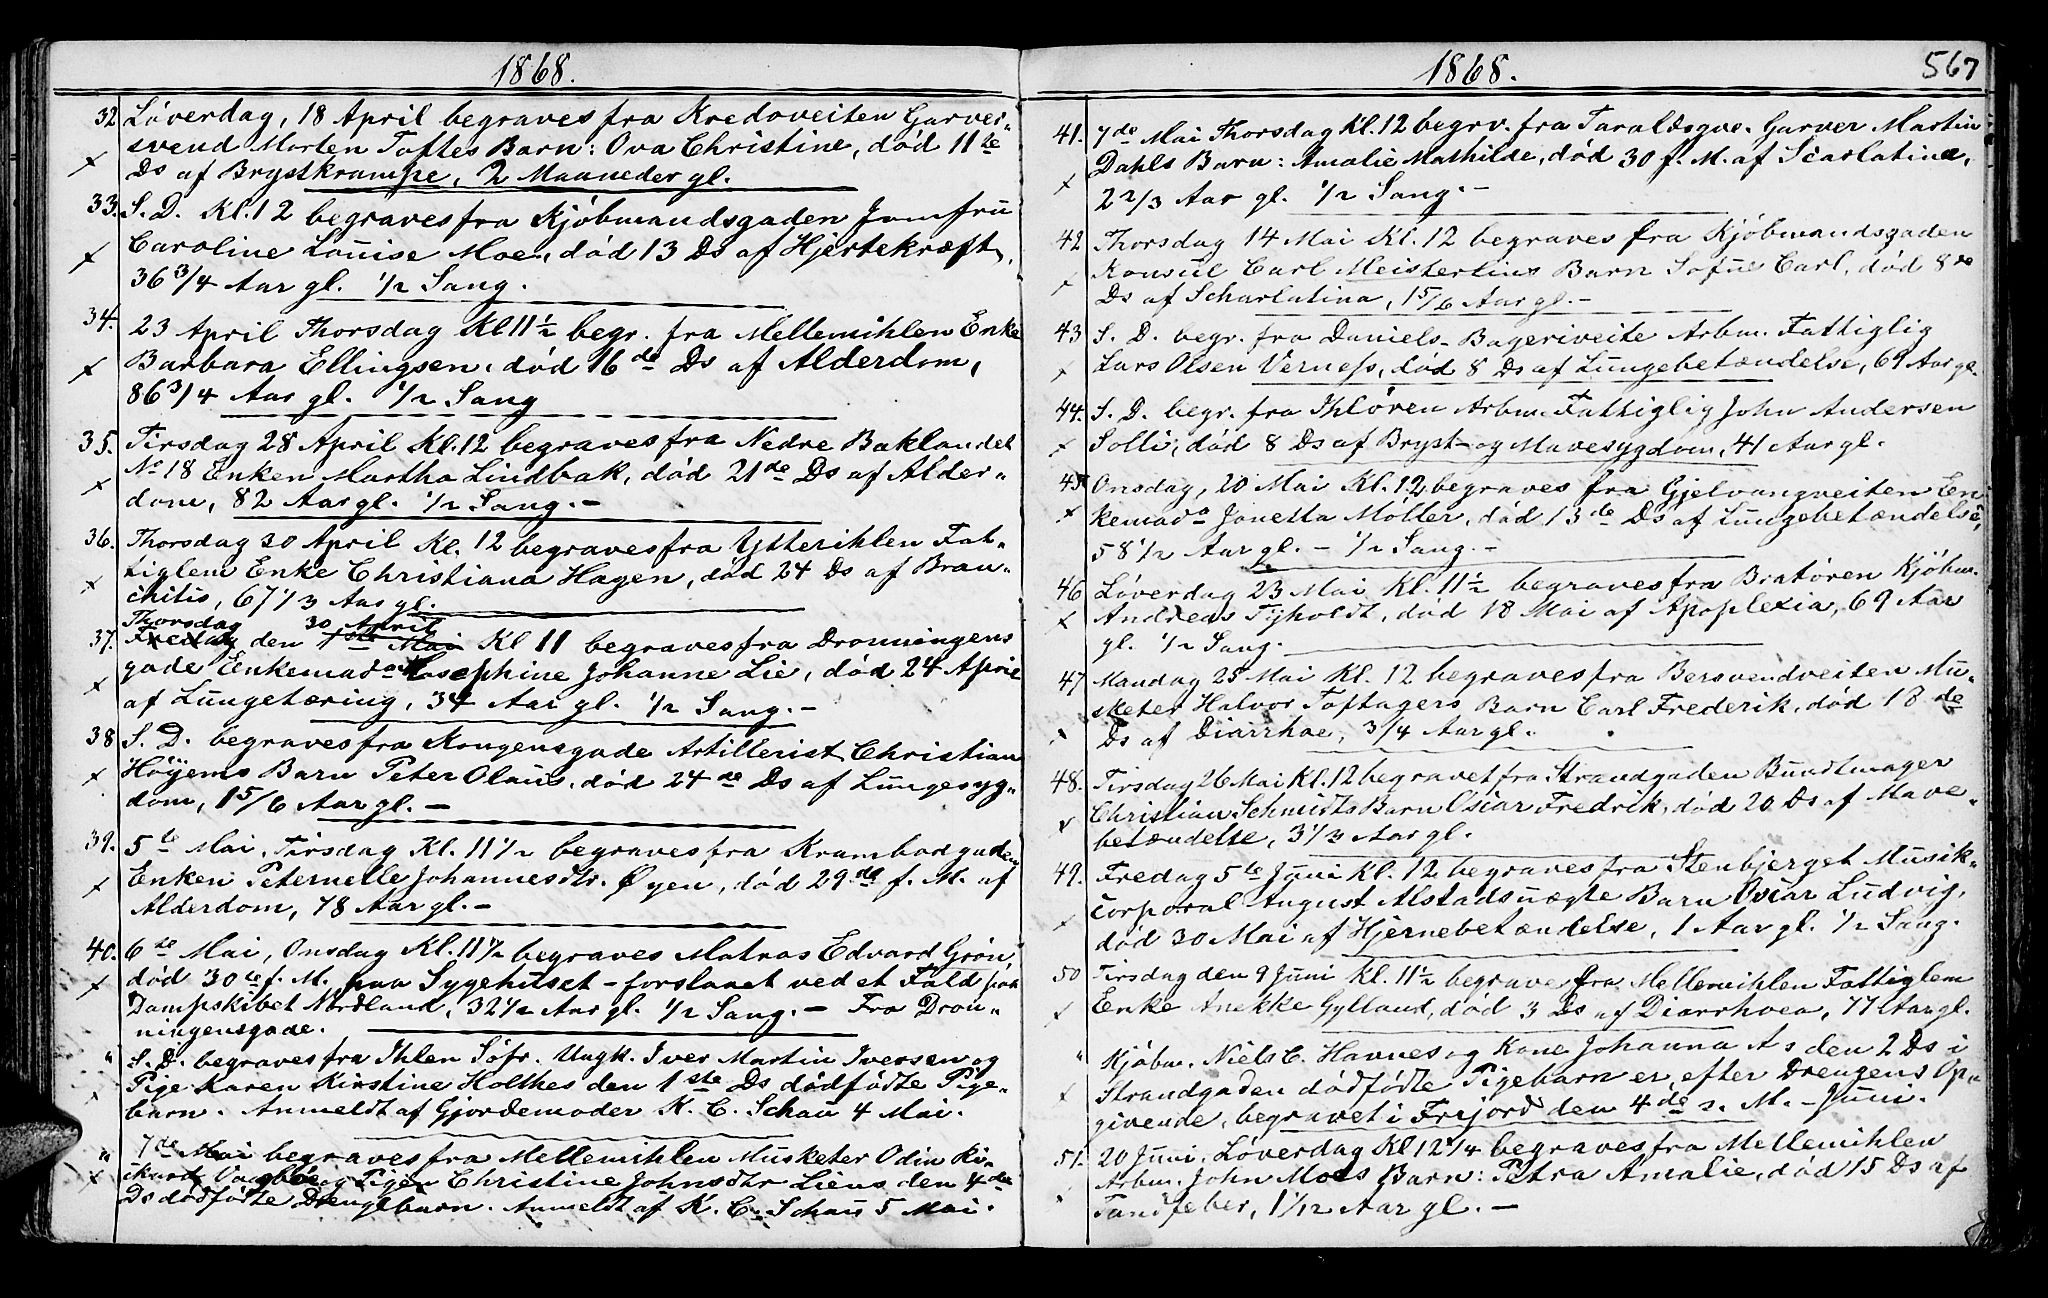 1868.
32 Løverdag, 18 April begraves fra Kredoveiten Garver-
svend Morten Toftes Barn: Ova Christine, død 11te
Ds af Brystkrampe, 2 Maaneder gl.
33. S. D. Kl. 12 begraves fra Kjøbmandsgaden Jomfru
Caroline Louise Moe, død 13 Ds af Hjertekræft,
36 3/4 Aar gl. 1/2 Sang.
34. 23 April Thorsdag Kl 11 1/2 begr. fra Mellemihlen Enke
Barbara Ellingsen, død 16de Ds af Alderdom,
86 3/4 Aar gl. 1/2 Sang
35. Tirsdag 28 April Kl. 12 begraves fra Nedre Baklandet
No 18 Enken Martha Lindbak, død 21de Ds af Alder-
dom, 82 Aar gl. 1/2 Sang. -
36. Thorsdag 30 April Kl. 12 begraves fra Ytterihlen Fat-
tiglem Enke Christiana Hagen, død 24 Ds af Bron-
chitis, 67 1/3 Aar gl.
Thorsdag 30 April
37. Fredag den 1ste Mai Kl 11 begraves fra Dronningens
gade Enkemadam Josephine Johanne Lie, død 24 April
af Lungetæring, 34 Aar gl. 1/2 Sang. -
38 S. D. begraves fra Kongensgade Artillerist Christian
Høyems Barn Peter Olaus, død 24de Ds af Lungesyg-
dom, 1 5/6 Aar gl. -
39. 5te Mai, Tirsdag Kl. 11 1/2 begraves fra Krambodgaden
Enken Peternelle Johannesdtr. Øyen, død 29de f. M. af
Alderdom, 78 Aar gl. -
40. 6te Mai, Onsdag Kl. 11 1/2 begraves Matros Edvard Grøn,
død 30te f. M. paa Sygehuset - forslaaet ved et Fald paa
Dampskibet Nordland, 32 1/2 Aar gl. 1/2 Sang. - Fra Dron-
ningensgade.
" S. D. begraves fra Ihlen Søfr. Ungk. Iver Martin Iversen og
Pige Karen Kirstine Holthes den 1ste Ds dødfødte Pige-
barn. Anmeldt af Gjordemoder K. C. Schau 4 Mai.
" 7de Mai begraves fra Mellemihlen Musketer Odin Ri-
og Pigen Christine Johnsdtr Liens den 4de
Ds dødfødte Drengebarn. Anmeldt af K. C. Schau 5 Mai.
1868. 567
41. 7de Mai Thorsdag Kl. 12 begrv. fra Taraldsgve. Garver Martin
Dahls Barn: Amalie Mathilde, død 30 f. M. af Scarlatina,
2 2/3 Aar gl. 1/2 Sang. -
42 Thorsdag 14 Mai Kl. 12 begraves fra Kjøbmandsgaden
Konsul Carl Meisterlins Barn Sofus Carl, død 8de
Ds af Scharlatina, 1 5/6 Aar gl. -
43 S. D. begr. fra Daniels-Bageriveite Arbm. Fattiglig
Lars Olsen Verness, død 8 Ds af Lungebetændelse, 69 Aar gl.
44. S. D. begr. fra Ihløren Arbm. Fattiglig John Andersen
Solli, død 8 Ds af Bryst- og Mavesygdom, 41 Aar gl.
45 Onsdag, 20 Mai Kl. 12 begraves fra Gjelvangveiten En-
kemada Janetta Møller, død 13de Ds af Lungebetændelse,
58 1/2 Aar gl. - 1/2 Sang. -
46 Løverdag 23 Mai Kl. 11 1/2 begraves fra Bratøren Kjøbm.
Andreas Tyholdt, død 18 Mai af Apoplexia, 69 Aar
gl. 1/2 Sang.
47 Mandag 25 Mai Kl. 12 begraves fra Bersvendveiten Mu-
sketer Halvor Toftagers Barn Carl Frederik, død 18de
Ds af Diarrhoe, 3/4 Aar gl.
48. Tirsdag 26 Mai Kl. 12 begravet fra Strandgaden Bundtmager
Christian Schmidts Barn Oscar Fredrik, død 20 Ds af Mave-
betændelse, 3 1/3 Aar gl.
49. Fredag 5te Juni Kl. 12 begraves fra Stenbjerget Musik-
corporal August Alstads uægte Barn Oscar Ludvig,
død 30 Mai af Hjernebetændelse, 1 Aar gl. 1/2 Sang.
50 Tirsdag den 9 Juni Kl. 11 1/2 begraves fra Mellemihlen Fattiglem
Enke Anekke Gylland, død 3 Ds af Diarrhoea, 77 Aar gl.
" Kjøbm. Niels C. Havnes og Kone Johanna As den 2 Ds i
Strandgaden dødfødte Pigebarn er, efter Drengens Op-
givende, begravet i Frejord den 4de s. M. - Juni.
51. 20 Juni, Løverdag Kl 12 1/4 begraves fra Mellemihlen
Arbm. John Moes Barn: Petra Amalie, død 15 Ds af
Tandfeber, 1 1/12 Aar gl. -